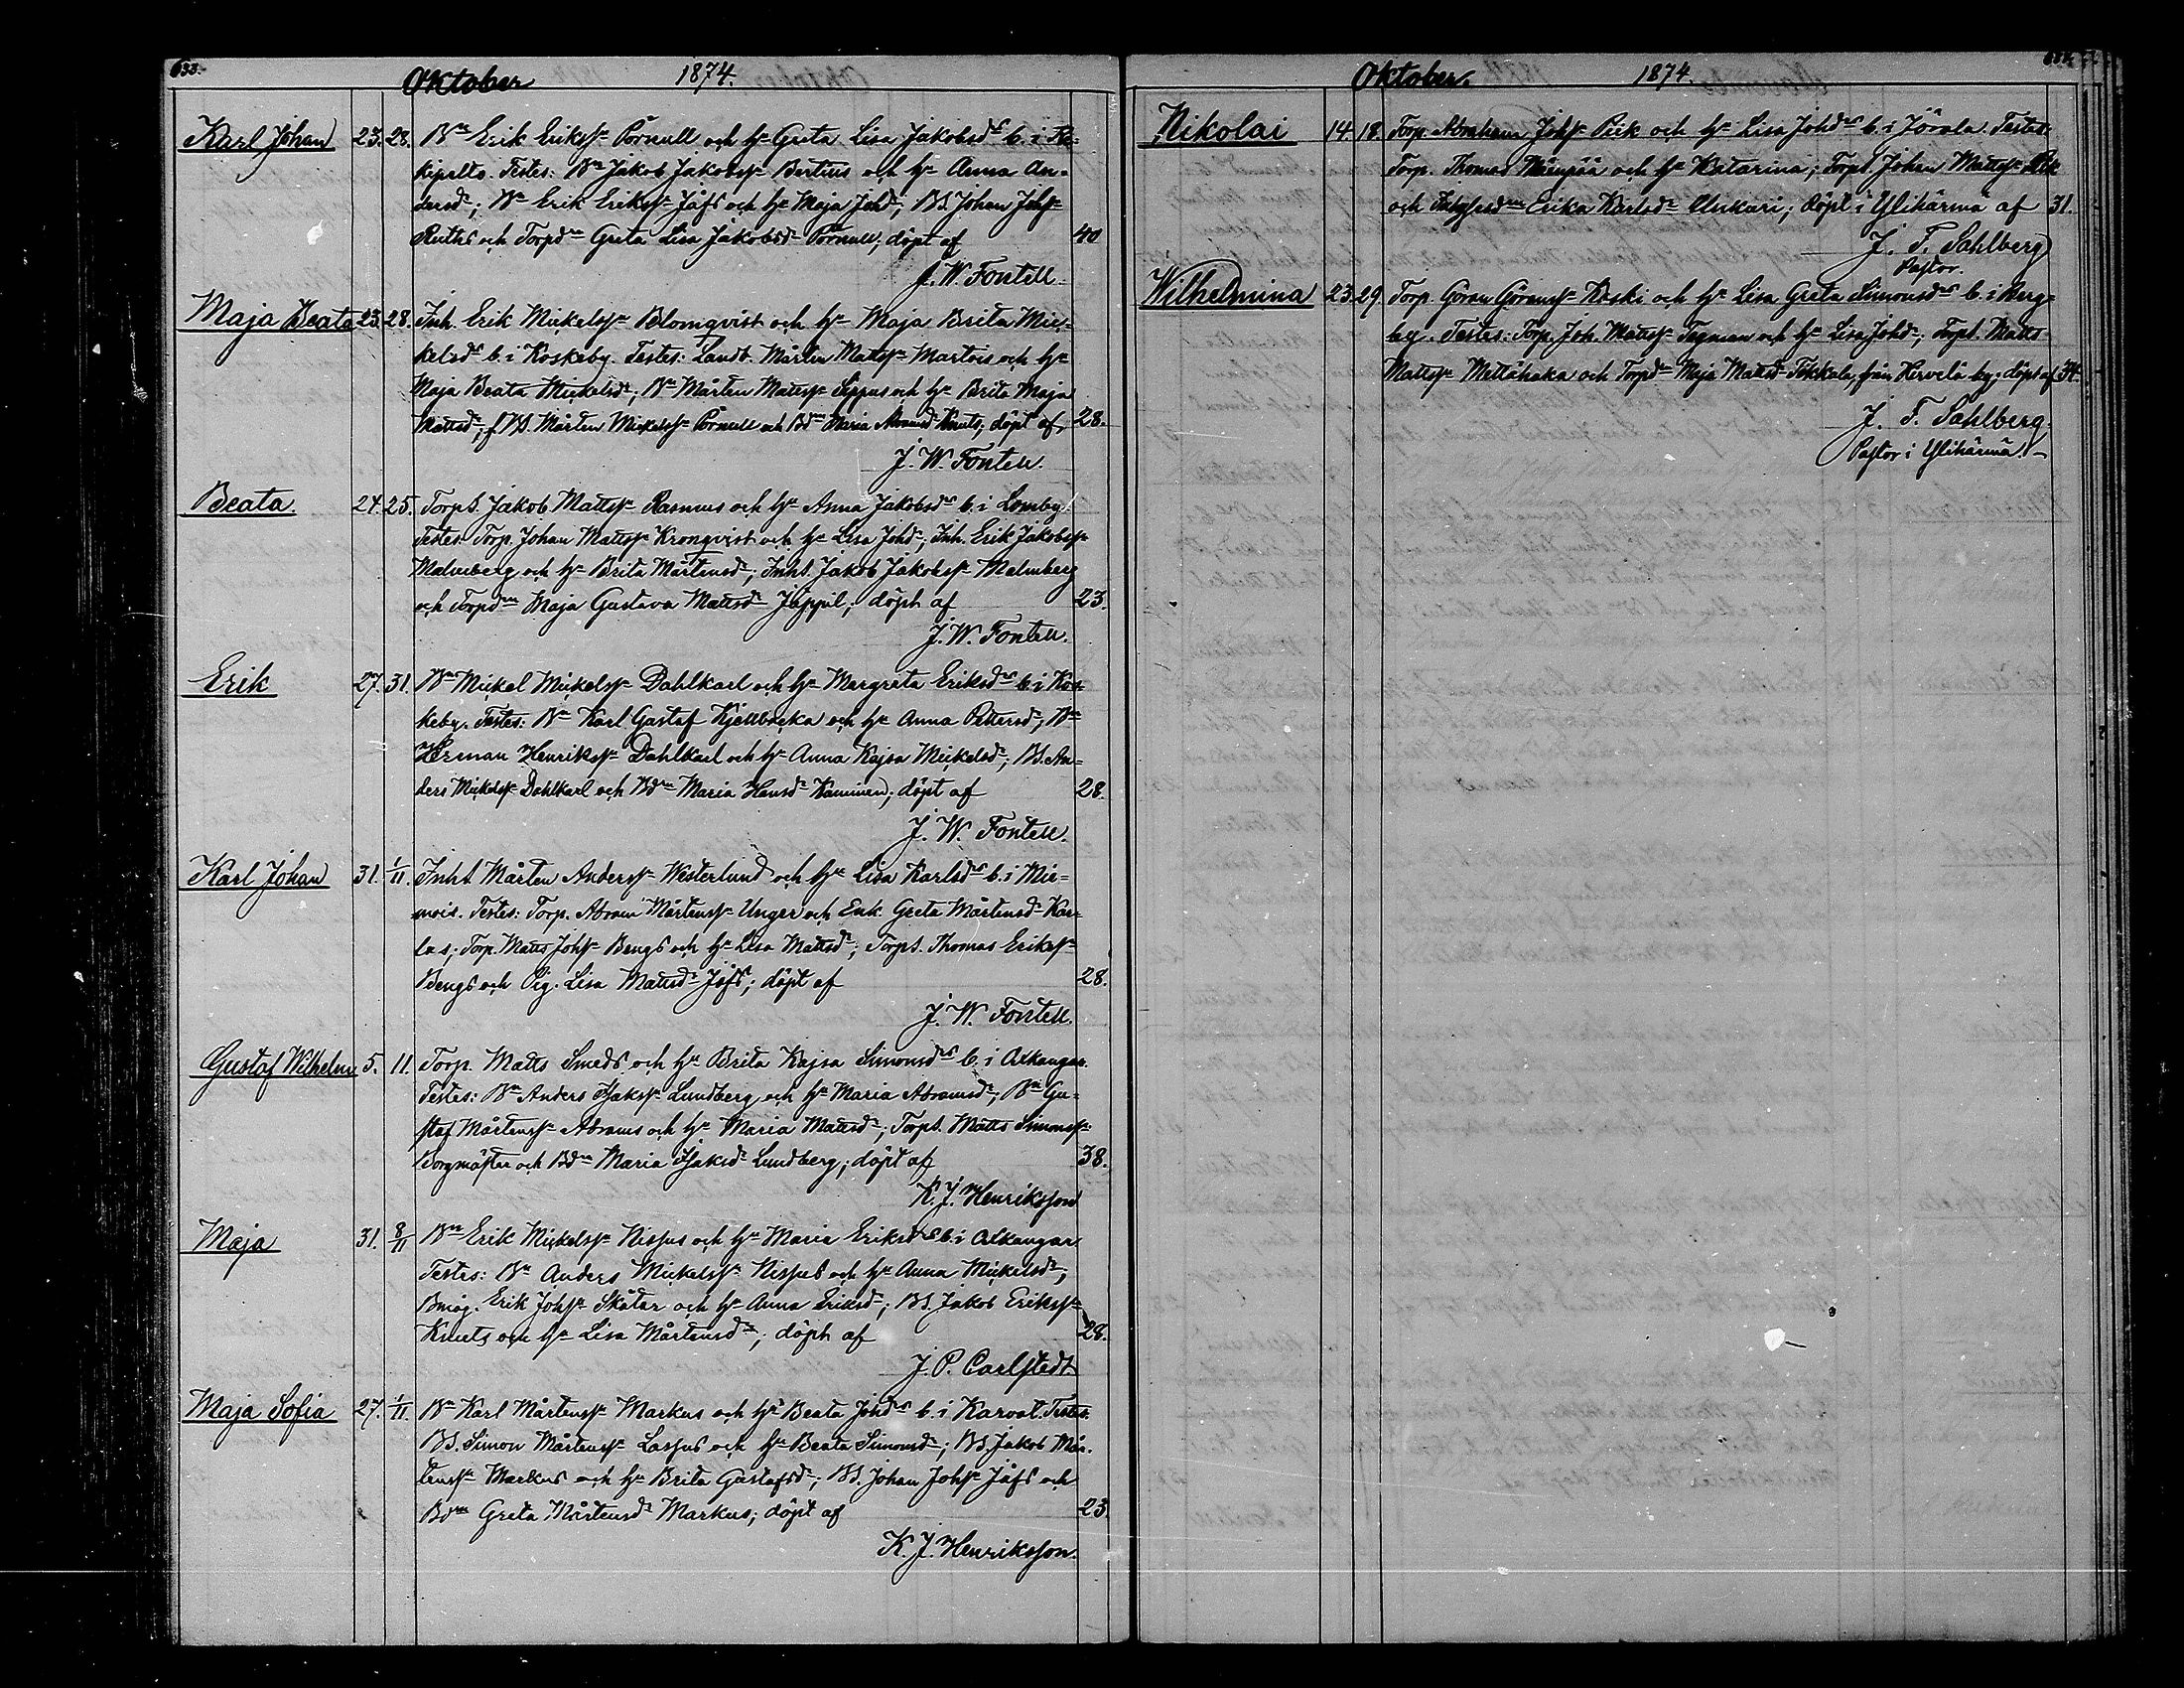 633.
Oktober 1874.
Karl Johan 23. 28. Bn Erik Erikss Pörnull och hu Greta Lisa Jakobsds b. i
kipelto. Testes: Bn Jakob Jakobss Bertius och hu Anna An=
dersd; Bn Erik Erikss Jåfs och hu Maja Johd; BS. Johan Johss
Ruths och Torpdn Greta Lisa Jakobsd Pörnull; döpt af 40
J. W. Fontell.
Maja Beata 23. 28. Inh. Erik Mickelss Blomqvist och hu Maja Brita Mic=
kelsds b. i Koskeby. Testes: Landb. Mårten Matss Martois och hu
Maja Beata Mickelsd; Bn Mårten Matss Sippus och hu Brita Maja
Mattsd; f.BS. Mårten Mickelss Pörnull och Bdn Maria Abramsd Knuts; döpt af 28.
J. W. Fontell.
Beata. 24. 25. TorpS. Jakob Mattss Rasmus och hu Anna Jakobsds b. i Lomby.
Testes: Torp. Johan Mattss Kronqvist och hu Lisa Johd; Inh. Erik Jakobss
Malmberg och hu Brita Mårtensd; InhS. Jakob Jakobss Malmberg
och Torpdn Maja Gustava Mattsd Jäppil; döpt af 23.
J. W. Fontell.
Erik 27. 31. Bn Mickel Mickelss Dahlkarl och hu Margreta Eriksds b. i Kos=
keby. Testes: Bn Karl Gustaf Kjellbacka och hu Anna Pettersd; Bn
Herman Henrikss Dahlkarl och hu Anna Kajsa Mickelsd; BS. An=
ders Mickelss Dahlkarl och Bdn Maria Hansd Kaminen; döpt af 28.
J. W. Fontell.
Karl Johan 31. 1/11. InhS. Mårten Anderss Westerlund och hu Lisa Karlsds b. i Mie=
mois. Testes: Torp. Abram Mårtenss Unger och Enk. Greta Mårtensd Kar=
las; Torp. Matts Johss Bengs och hu Lisa Mattsd; TorpS. Thomas Erikss
Bengs och Pig. Lisa Mattsd Jåfs; döpt af 28.
J. W. Fontell.
Gustaf Wilhelm 5. 11. Torp. Matts Smeds och hu Brita Kajsa Simonsds b. i Alkangar.
Testes: Bn Anders Isakss Lundberg och hu Maria Abramsd; Bn Gu=
staf Mårtenss Abrams och hu Maria Mattsd; TorpS. Matts Simonss
Borgmästar och Bdn Maria Isaksd Lundberg; döpt af 38.
K. J. Henriksson
Maja 31. 8/11 Bn Erik Mickelss Nissus och hu Maria Eriksds b. i Alkangar.
Testes: Bn Anders Mickelss Nissus och hu Anna Mickelsd;
Bmåg. Erik Johss Skåtar och hu Anna Eriksd; BS. Jakob Erikss
Knuts och hu Lisa Mårtensd; döpt af 28.
J. P. Carlstedt.
Maja Sofia 27. 1/11. Bn Karl Mårtenss Markus och hu Beata Johds b. i Karvat. Testes:
BS. Simon Mårtenss Lassus och hu Beata Simonsd; BS. Jakob Mår=
tenss Markus och hu Brita Gustafsd; BS. Johan Johss Jåfs och
Bdn Greta Mårtensd Markus; döpt af 23
K. J. Henriksson.
634.
Oktober. 1874.
Nikolai 14. 18. Torp. Abraham Johss Piik och hu Lisa Johds b. i Jörala. Testes:
Torp. Thomas Mäenpää och hu Katarina; TorpS. Johan Mattss Piik
och Erika Karlsd Unkuri; döpt i Ylihärmä af 31.
J. F. Sahlberg
Pastor.
Wilhelmina 23. 29. Torp. Göran Göranss Koski och hu Lisa Greta Simonsds b. i Berg=
by. Testes: Torp. Joh. Mattss Tegman och hu Lisa Johd; TorpS. Matts
Mattss Mettähaka och Torpdn Maja Mattsd Tokkala, från Hervelä by; döpt af 34.
J. F. Sahlberg.
Pastor i Ylihärmä.